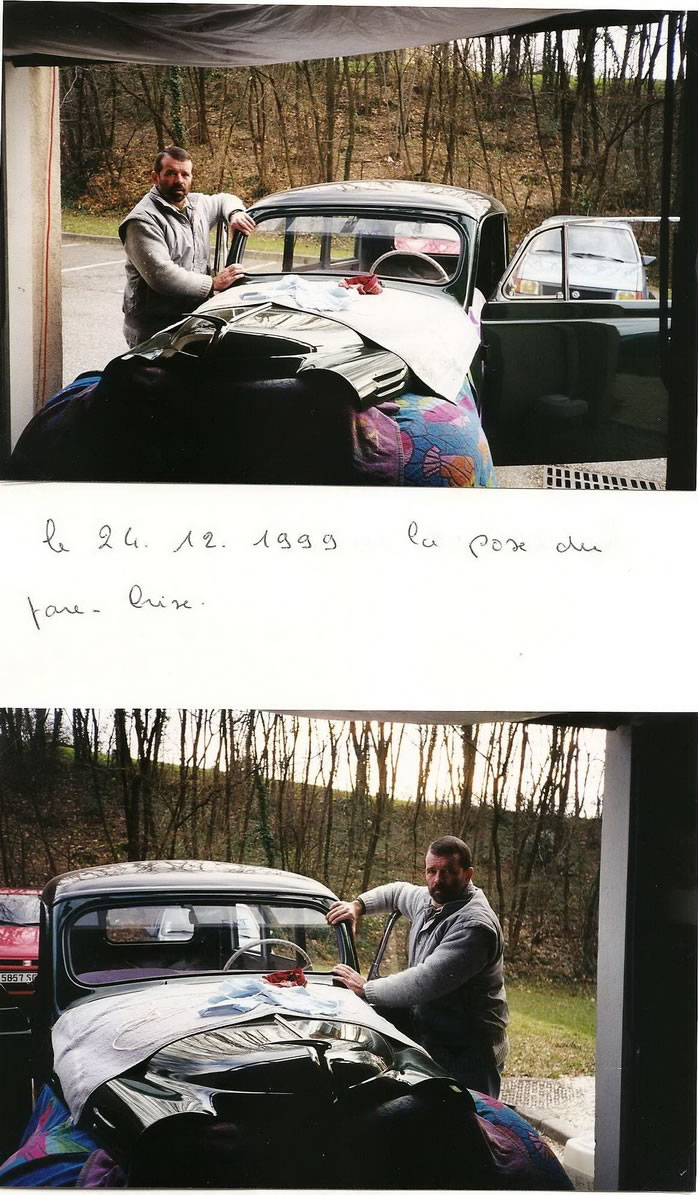 le 24. 12. 1999 la pose du
pare-brise.
5857 S